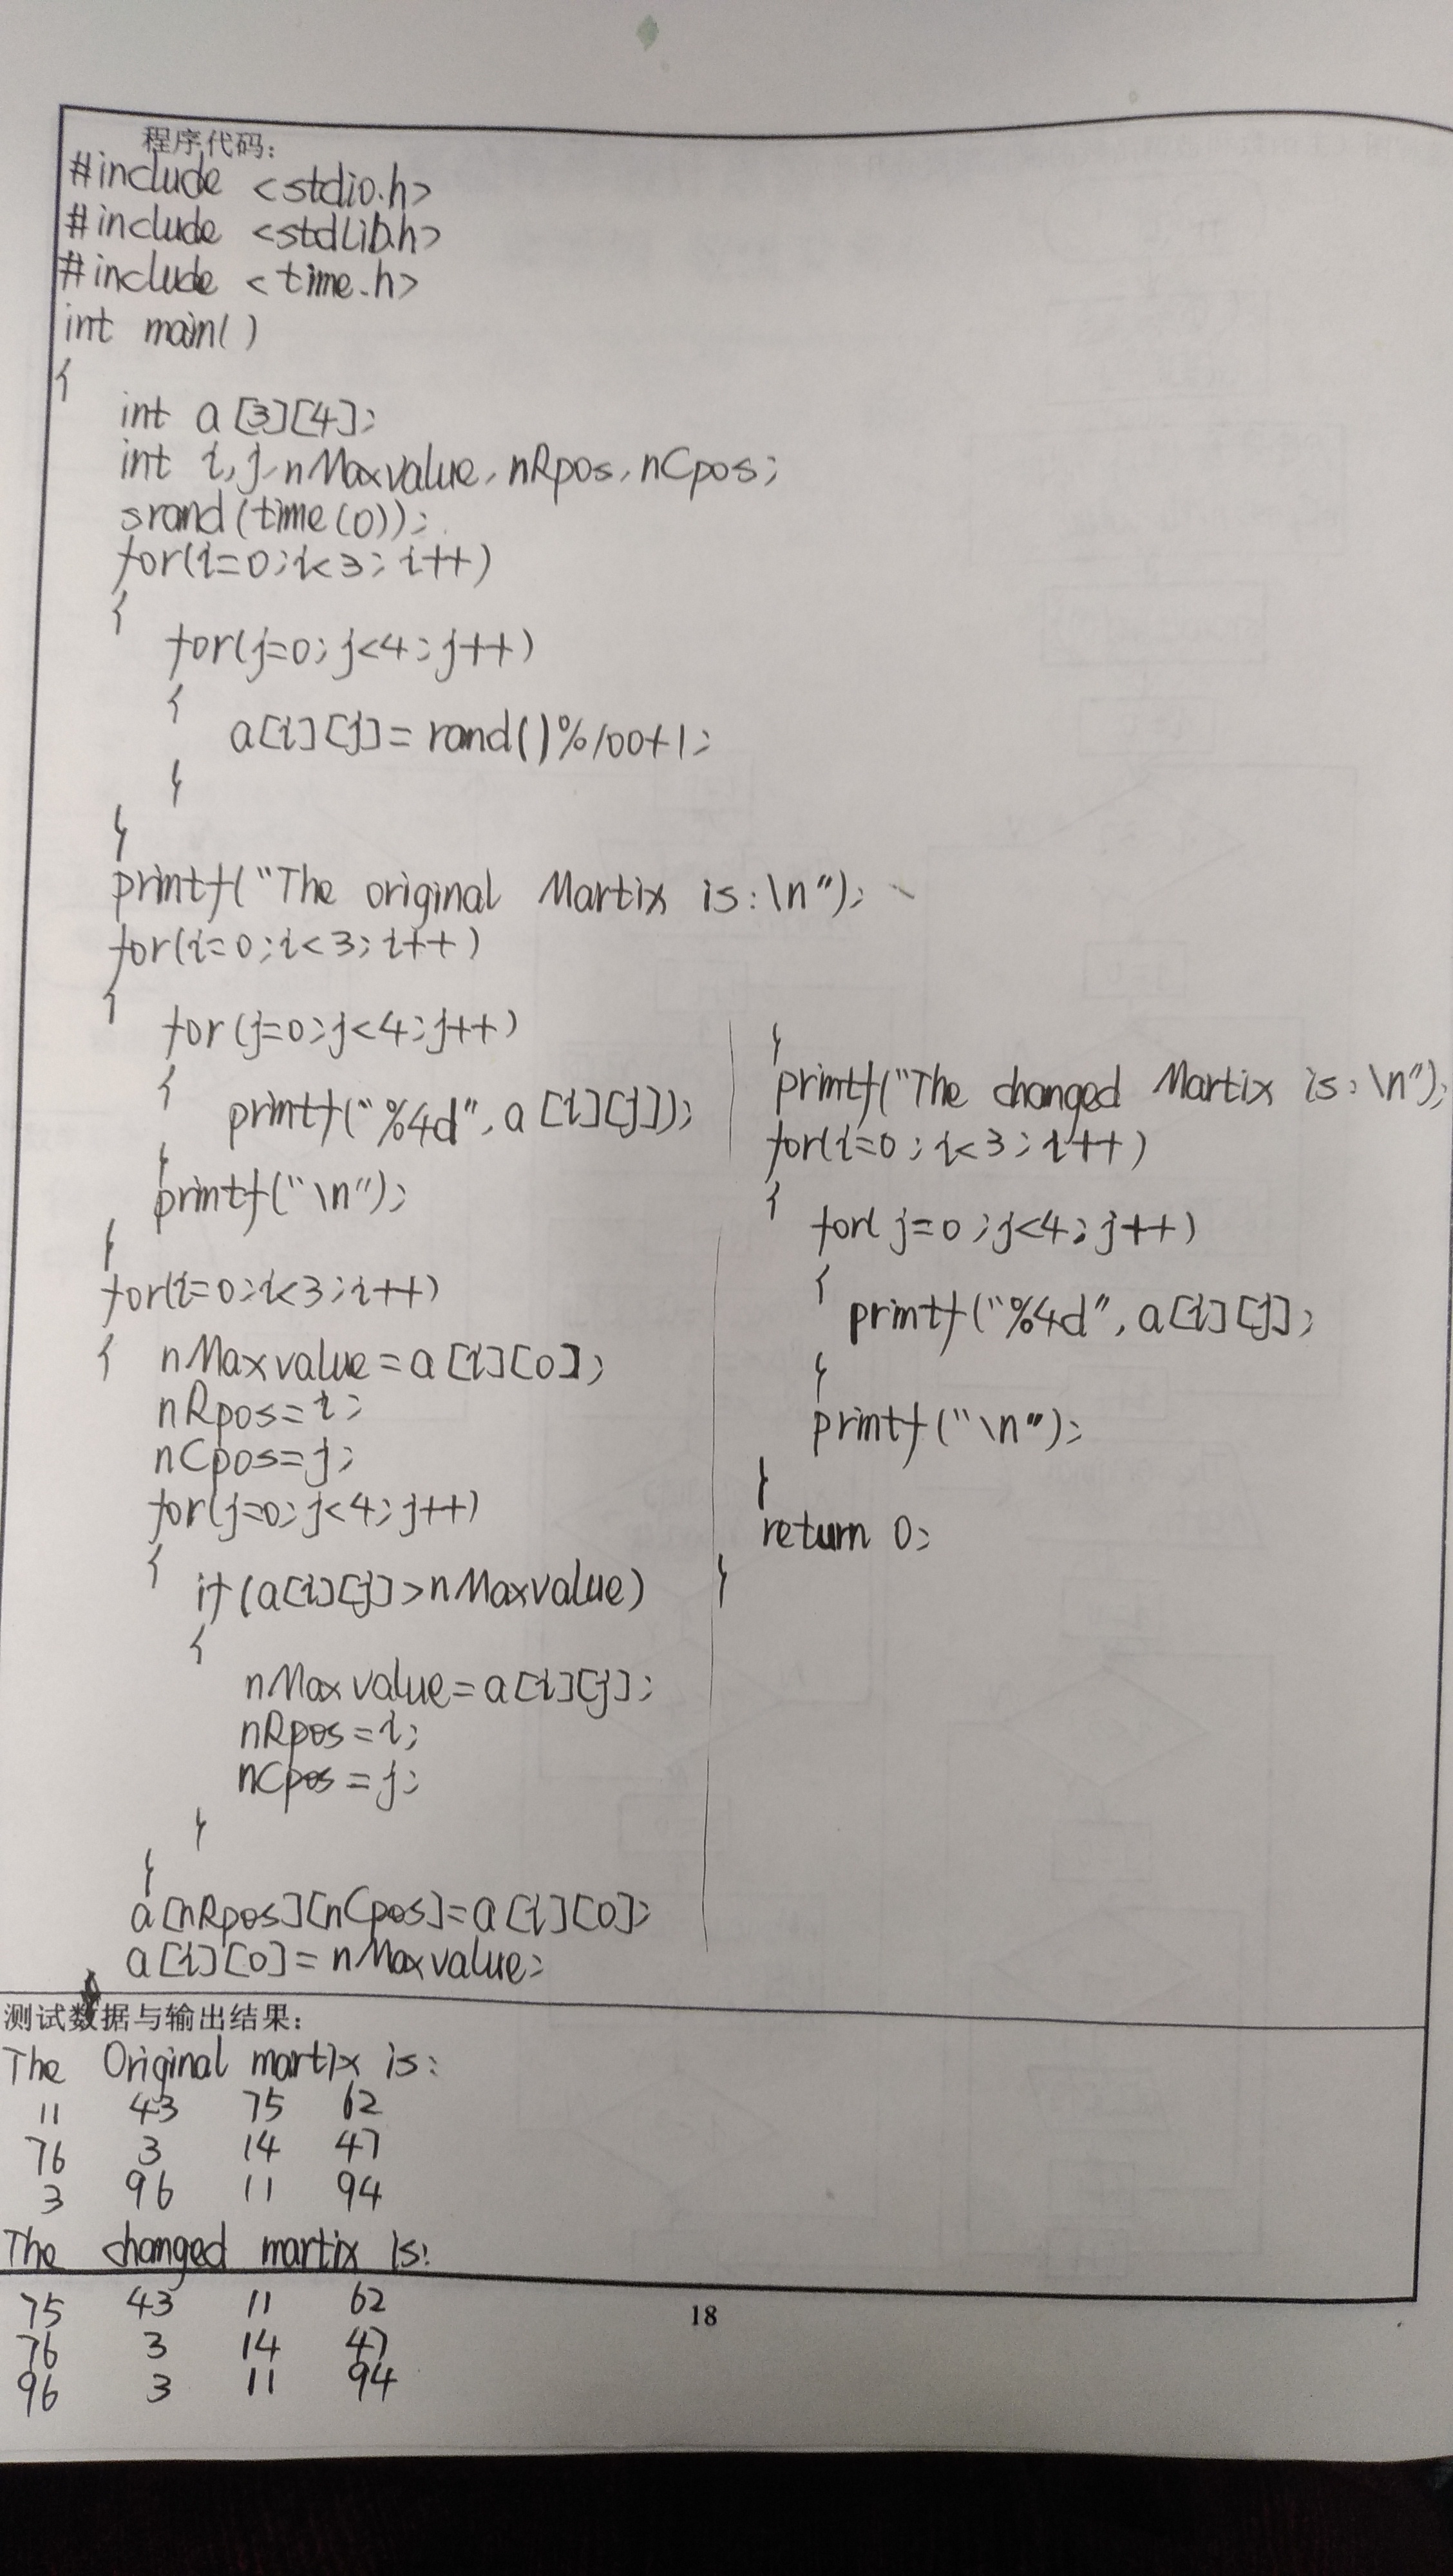 程序代码:
#include <stdio.h>
#include <stdLib.h>
#include <time.h>
int main()
{
int a[3][4];
int i,j,nMaxvalue,nRpos,nCpos;
srand(time(0));
for(i=0;i<3;i++)
{
for(j=0;j<4;j++)
{
a[i][j]=rand()%100+1;
}
}
printf("The original Martix is:\n");
for(i=0;i<3;i++)
{
for(j=0;j<4;j++)
{
printf("%4d",a[i][j]);
}
printf("\n");
}
for(i=0;i<3;i++)
{ nMaxvalue=a[i][0];
nRpos=i;
nCpos=j;
for(j=0;j<4;j++)
{
if(a[i][j]>nMaxvalue)
{
nMaxvalue=a[i][j];
nRpos=i;
nCpos=j;
}
}
a[nRpos][nCpos]=a[i][0];
a[i][0]=nMaxvalue;
}
printf("The changed Martix is:\n");
for(i=0;i<3;i++)
{
for(j=0;j<4;j++)
{
printf("%4d",a[i][j];
}
printf("\n");
}
return 0;
}
测试数据与输出结果:
The Original martix is:
11 43 75 62
76 3 14 47
3 96 11 94
The changed martix is:
75 43 11 62
76 3 14 47
96 3 11 94
18